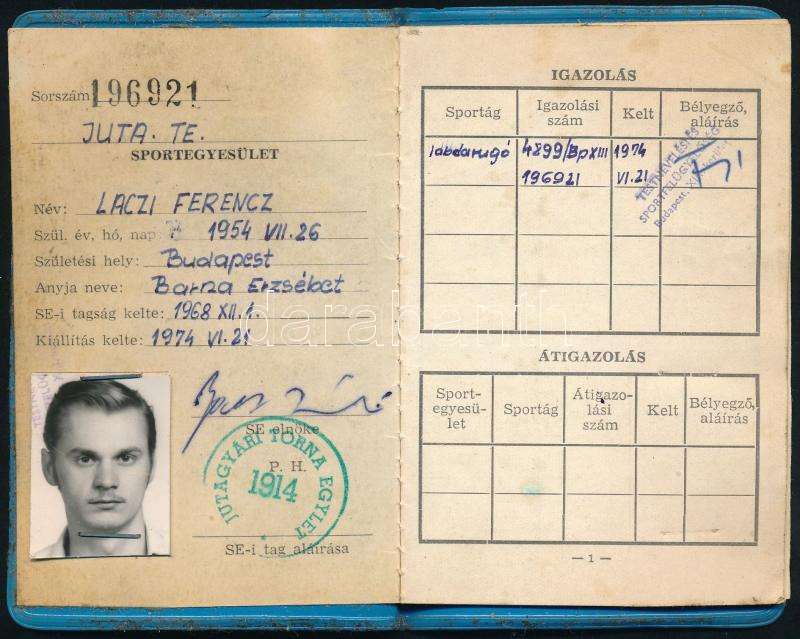 Sorszám 196921
JUTA. TE.
SPORTEGYESÜLET
Név: LACZI FERENCZ
Szül. év, hó, nap: 1954 VII.26
Születési hely: Budapest
Anyja neve: Barna Erzsébet
SE-i tagság kelte: 1968 XII.1.
Kiállítás kelte: 1974 VI.21
SE elnöke
P. H.
JUTAGYÁRI TORNA EGYLET
1914
SE-i tag aláírása
IGAZOLÁS
Sportág Igazolási szám Kelt Bélyegző, aláírás
labdarugó 4899/Bp XIII 1974
196921 VI.21
TESTNEVELÉSI ÉS
Budapest, XIII.
ÁTIGAZOLÁS
Sport-egyesü-let Sportág Átigazo-lási szám Kelt Bélyegző, aláírás
— 1 —
darabanth